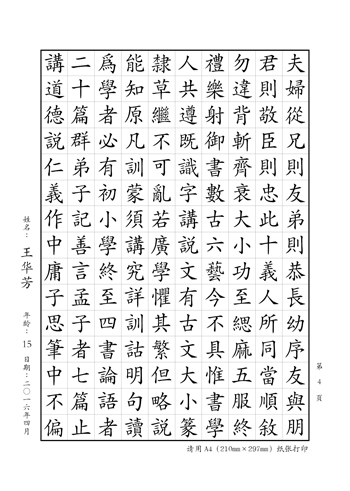 夫婦從兄則友弟則恭長幼序友與朋
君則敬臣則忠此十義人所同當順敘
勿違背斬齊衰大小功至緦麻五服終
禮樂射御書數古六藝今不具惟書學
人共遵既識字講説文有古文大小篆
隸草繼不可亂若廣學懼其繁但略説
能知原凡訓蒙須講究詳訓詁明句讀
爲學者必有初小學終至四書論語者
二十篇群弟子記善言孟子者七篇止
講道德説仁義作中庸子思筆中不偏
姓名：王华芳 年龄：15 日期：二〇一六年四月
第 4 页
请用A4（210mm×297mm）纸张打印